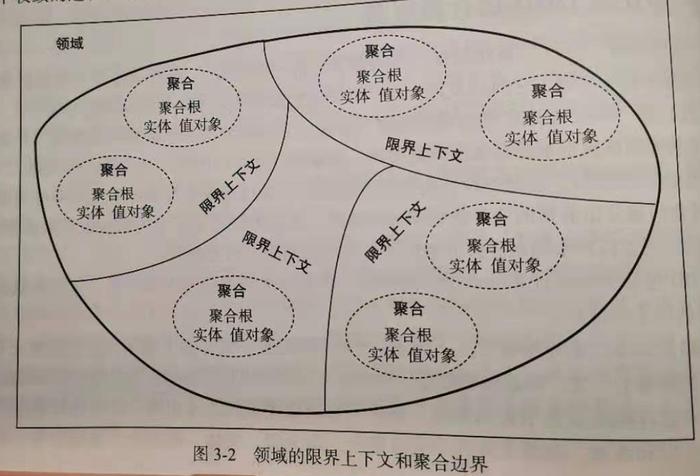 领域
聚合
聚合根
实体 值对象
聚合
聚合根
实体 值对象
限界上下文
聚合
聚合根
实体 值对象
聚合
聚合根
实体 值对象
限界上下文
限界上下文
聚合
聚合根
实体 值对象
限界上下文
聚合
聚合根
实体 值对象
聚合
聚合根
实体 值对象
图 3-2 领域的限界上下文和聚合边界